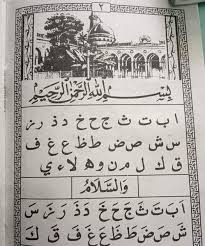 ٢
بِسْمِ اللهِ الرَّحْمٰنِ الرَّحِيْمِ
ا ب ت ث ج ح خ د ذ ر ز
س ش ص ض ط ظ ع غ ف
ق ك ل م ن و ه لا ء ي
وَالسَّلَامُ
اَ بَ تَ ثَ جَ حَ خَ دَ ذَ رَ زَ سَ
شَ صَ ضَ طَ ظَ عَ غَ فَ قَ كَ